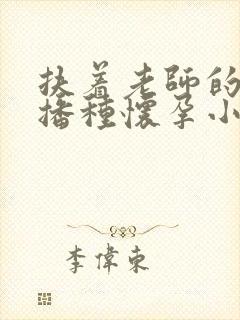 扶着老師的
播種懷孕小
李偉東